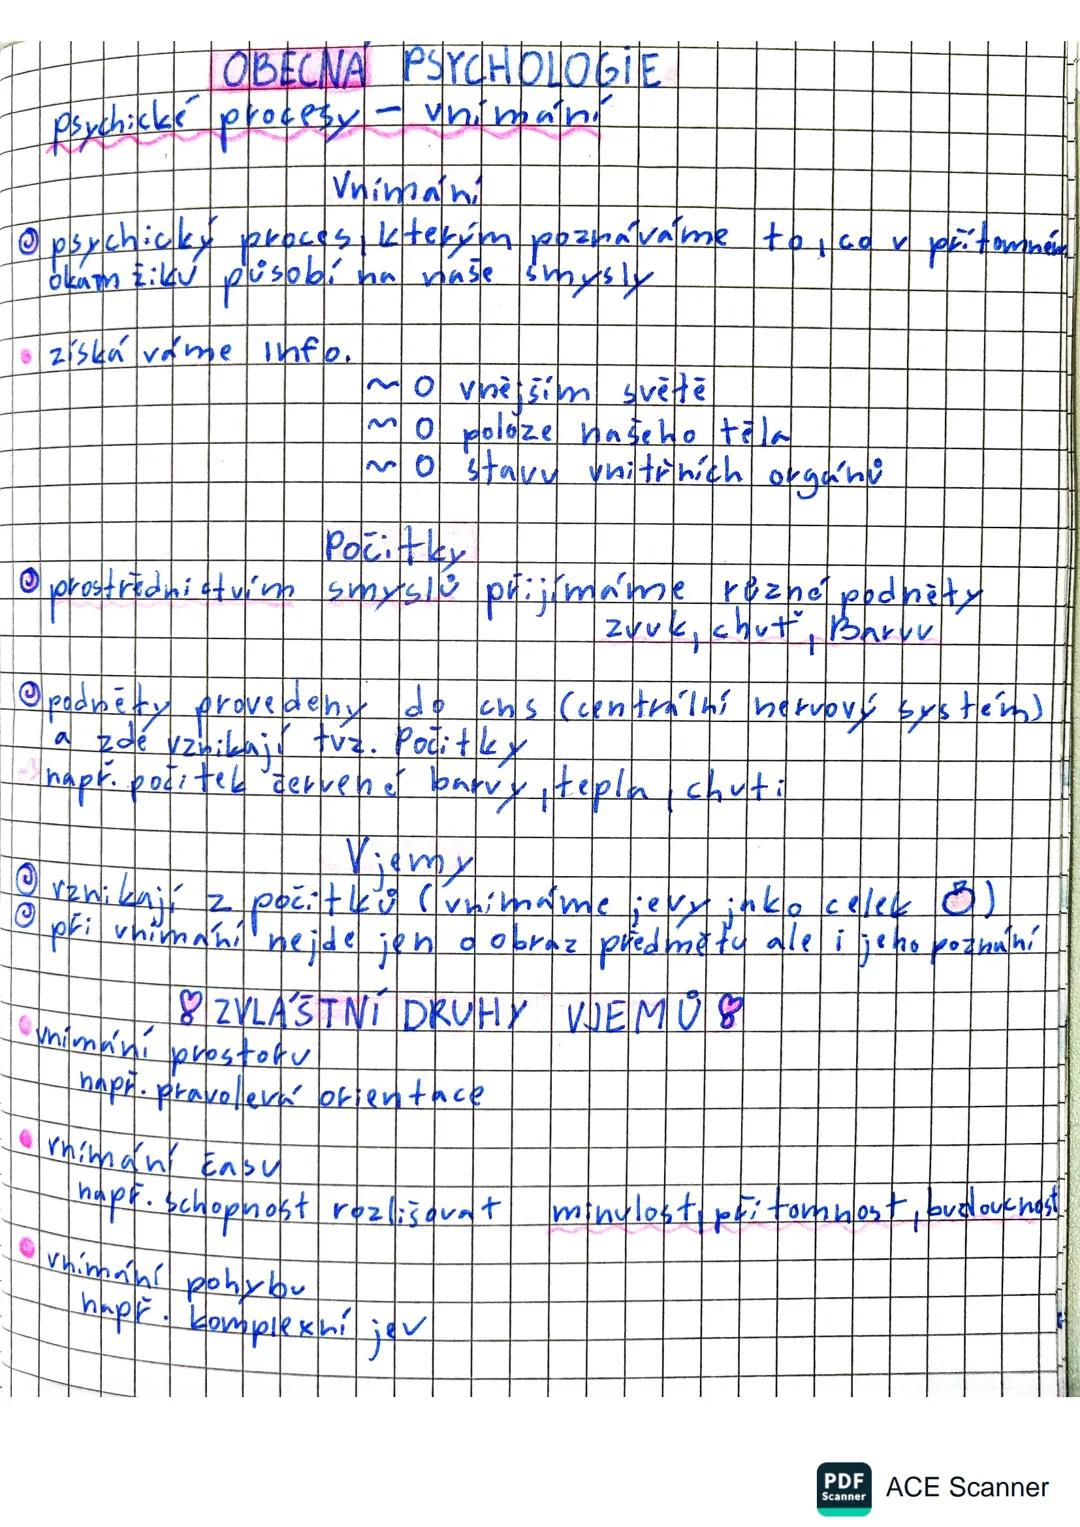 OBECNÁ PSYCHOLOGIE
psychické procesy - vnímání
Vnímání
psychický proces, kterým poznáváme to, co v přítomném
okamžiku působí na naše smysly
získáváme info.
~ O vnějším světě
~ O poloze našeho těla
~ O stavu vnitřních orgánů
Počitky
prostřednictvím smyslů přijímáme různé podněty
zvuk, chuť, Barvu
podněty provedeny do cns (centrální nervový systém)
a zde vznikají tvz. Počitky
např. počitek červené barvy, tepla, chuti
Vjemy
vznikají z počitků (vnímáme jevy jako celek)
při vnímání nejde jen o obraz předmětu ale i jeho poznání
ZVLÁŠTNÍ DRUHY VJEMŮ
vnímání prostoru
např. pravolevá orientace
vnímání času
např. schopnost rozlišovat minulost, přítomnost, budoucnost
vnímání pohybu
např. komplexní jev
PDF
Scanner
ACE Scanner